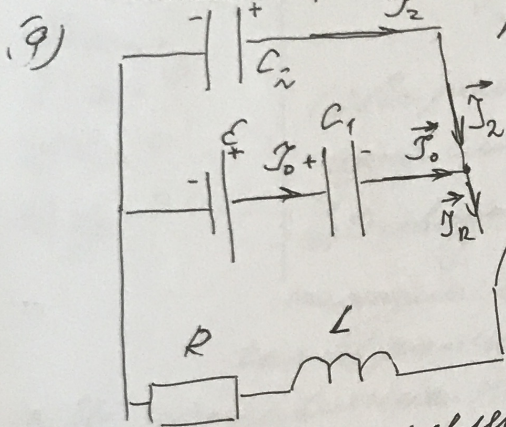 9) - + J₂
C₂
ε + J₀ + C₁ - J₀ J₂
-
J_R
R L